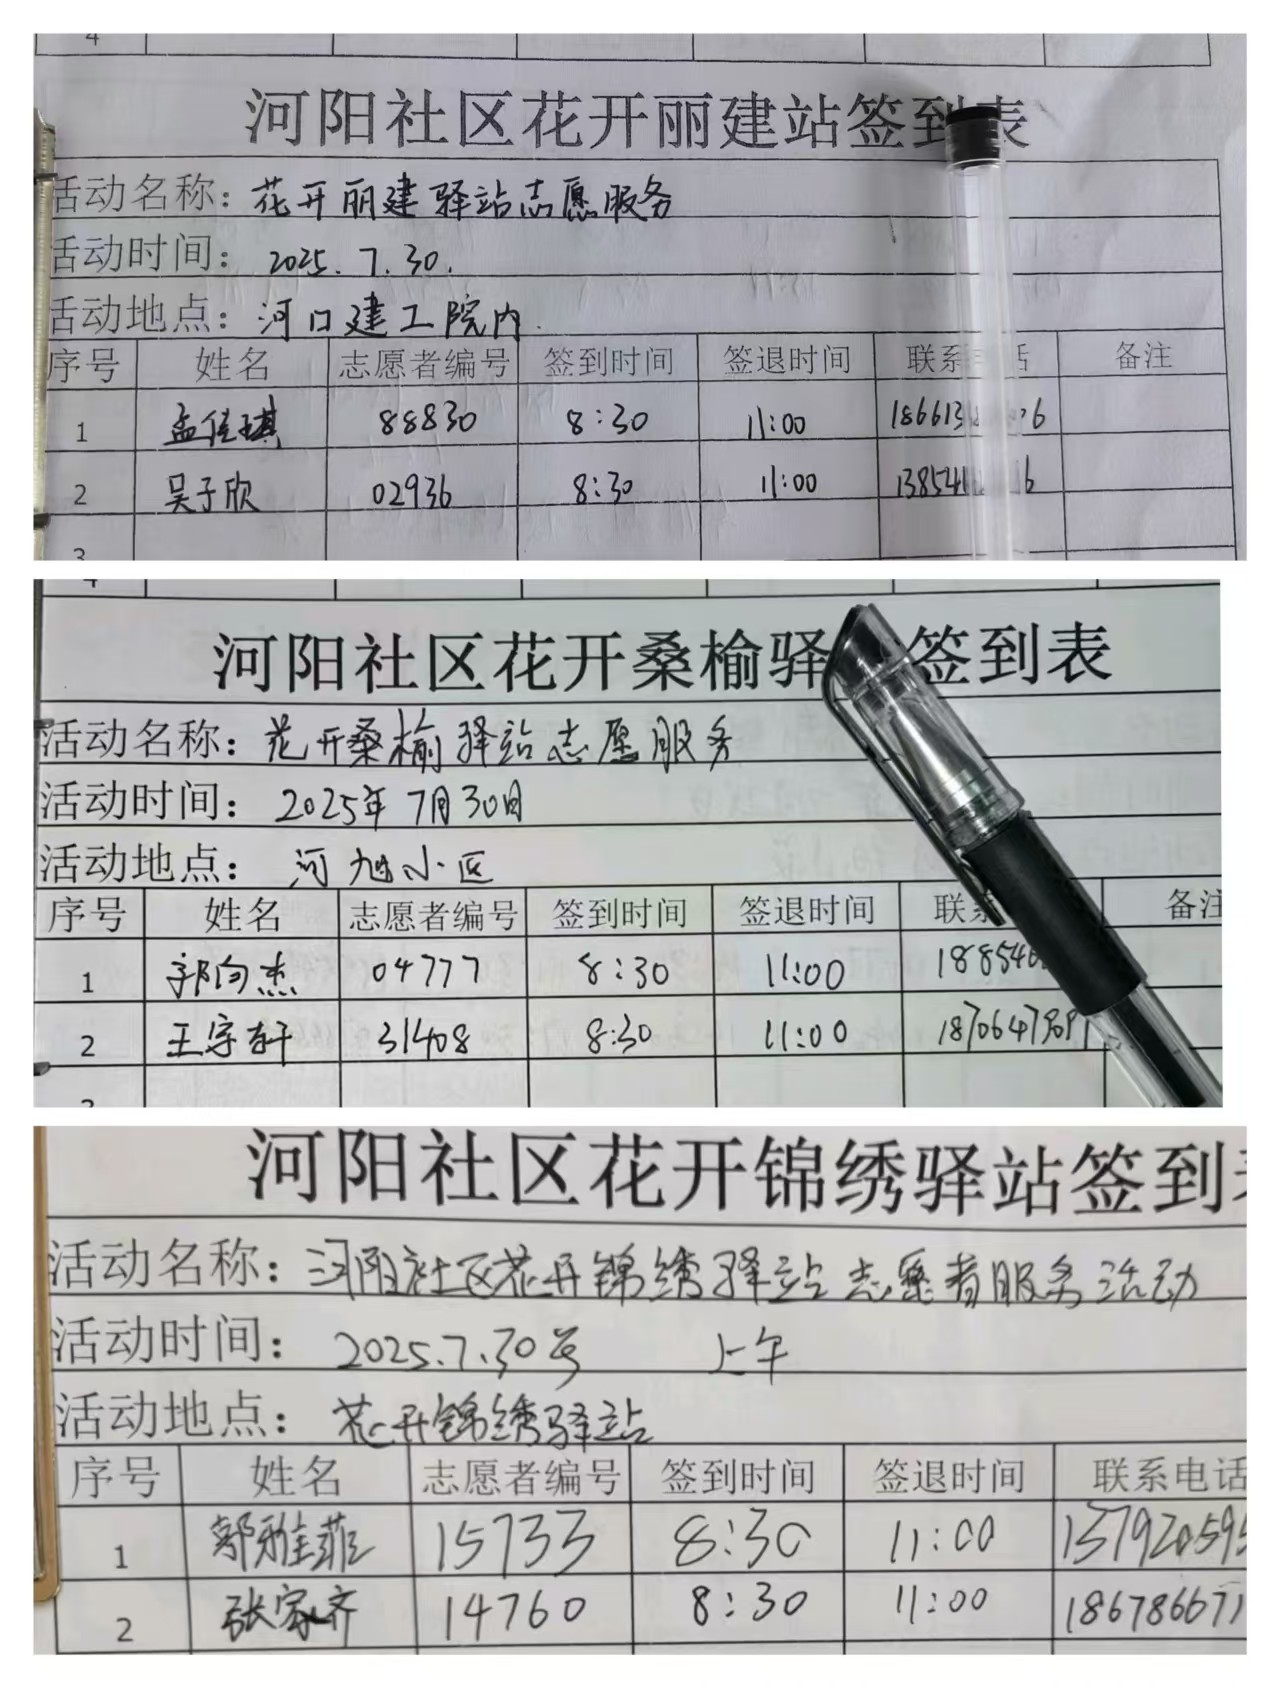 4
河阳社区花开丽建站签到表
活动名称：花开丽建驿站志愿服务
活动时间：2025.7.30.
活动地点：河口建工院内.
序号 姓名 志愿者编号 签到时间 签退时间 联系 话 备注
1 孟佳琪 88830 8:30 11:00 18661 6
2 吴子欣 02936 8:30 11:00 13854 6
3
4
河阳社区花开桑榆驿 签到表
活动名称：花开桑榆驿站志愿服务
活动时间：2025年7月30日
活动地点：河旭小区
序号 姓名 志愿者编号 签到时间 签退时间 联系 备注
1 郭向杰 04777 8:30 11:00 188546
2 王宇轩 31408 8:30 11:00 187064
河阳社区花开锦绣驿站签到
活动名称：河阳社区花开锦绣驿站志愿者服务活动
活动时间：2025.7.30号 上午
活动地点：花开锦绣驿站
序号 姓名 志愿者编号 签到时间 签退时间 联系电话
1 郭雅菲 15733 8:30 11:00 137920595
2 张家齐 14760 8:30 11:00 186786671